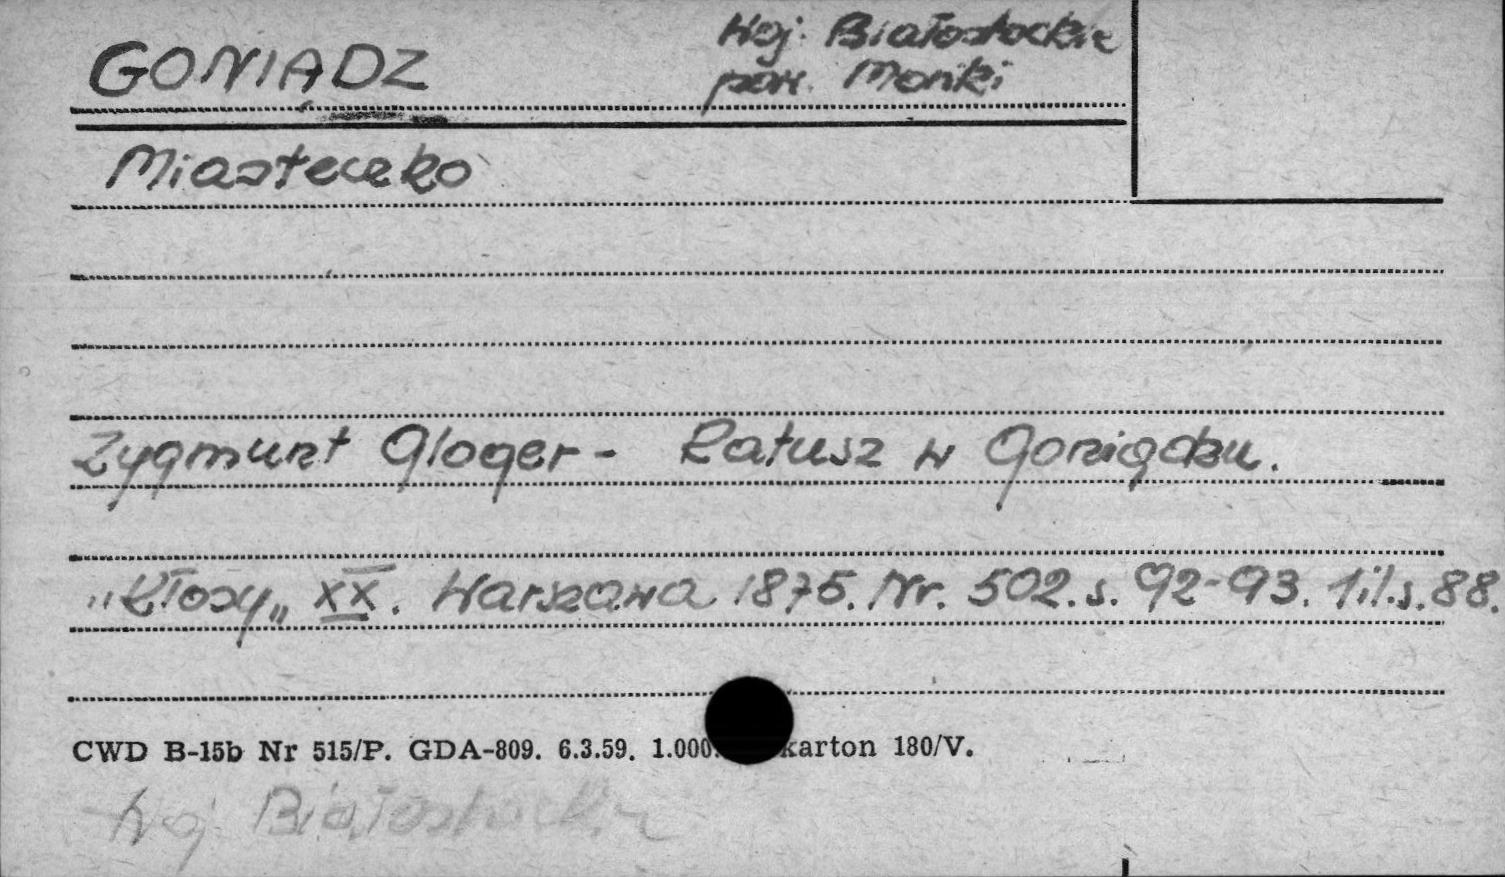 GONIĄDZ
Woj. Białostockie
pow. Mońki
Miasteczko
Zygmunt Gloger - Ratusz w Goniądzu.
"Kłosy„ XX. Warszawa 1875. Nr. 502. s. 92-93. 1 il. s. 88.
CWD B-15b Nr 515/P. GDA-809. 6.3.59. 1.000. karton 180/V.
Woj. Białostockie